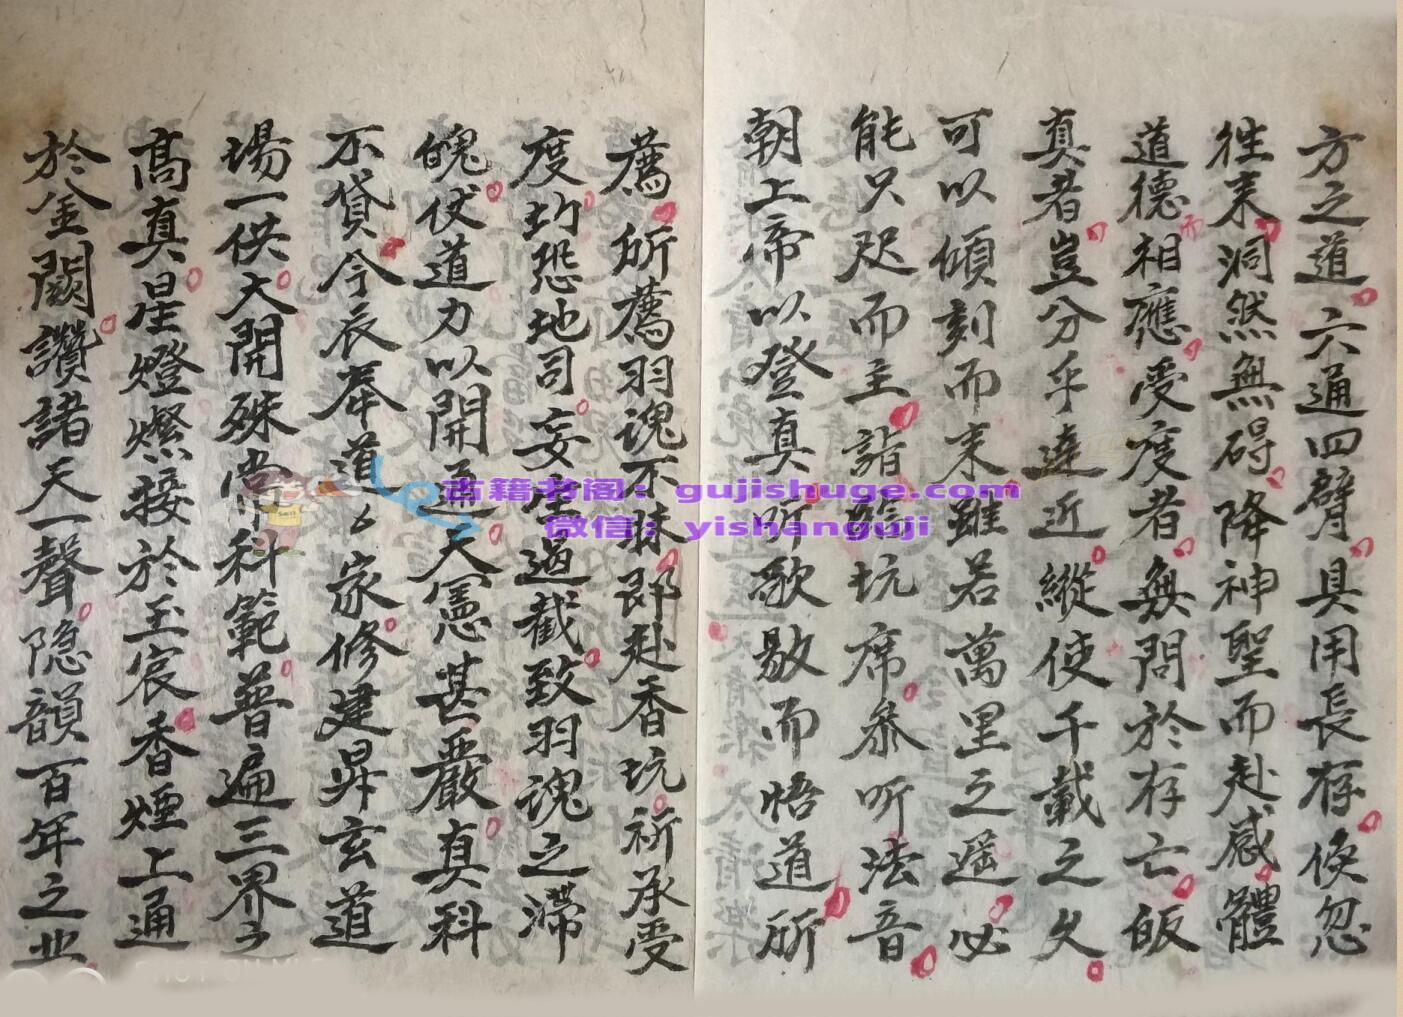 方之道六通四臂具用長存倏忽
往来洞然無碍降神聖而赴感體
道德相應受度者無問於存亡皈
真者豈分乎遠近縱使千載之久
可以傾刻而来雖若萬里之遥必
能只咫而主詣醮坑席恭听法音
朝上帝以登真听歌歇而悟道所
薦所薦羽魂不昧即赴香坑祈承受
度功恐地司妄生遏截致羽魂之滯
魄伏道力以開通天憲甚嚴真科
不貸今辰奉道々家修建昇玄道
場一供大開殊尚科範普遍三界之
髙真星燈燦接於玉宸香煙上通
於金闕讚諸天一聲隐韻百年之
而
古籍书阁：gujishuge.com
微信：yishanguji